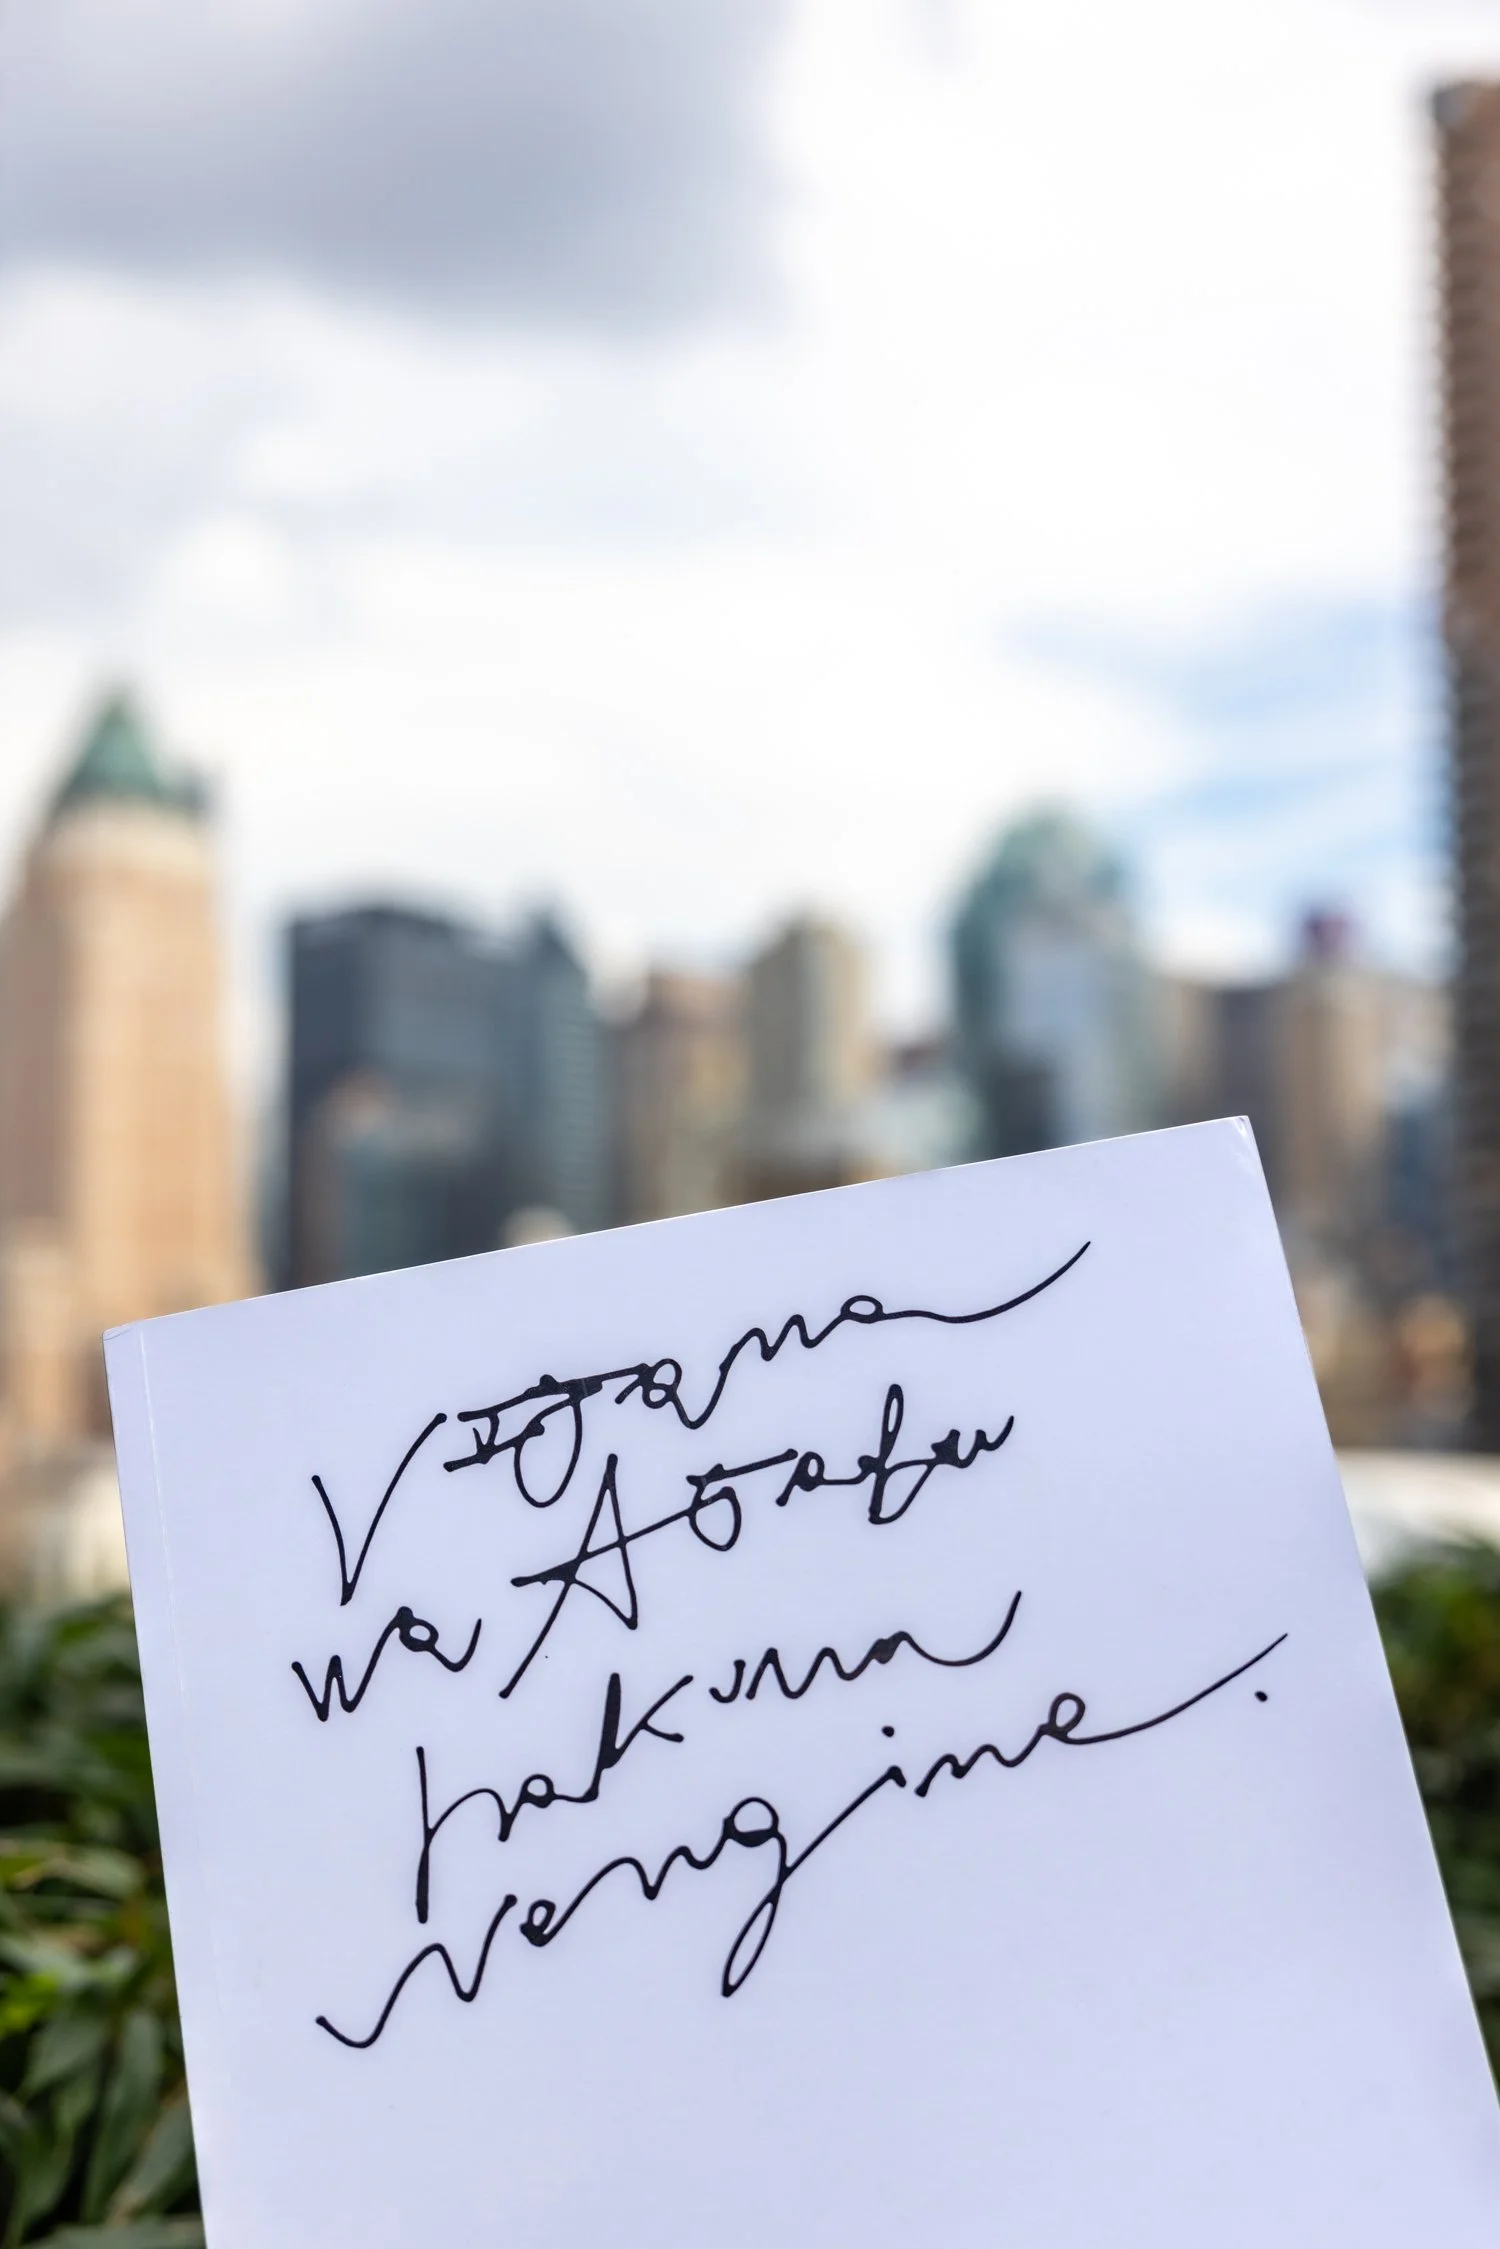 Vijana
wa Asafu
hakuna
wengine.